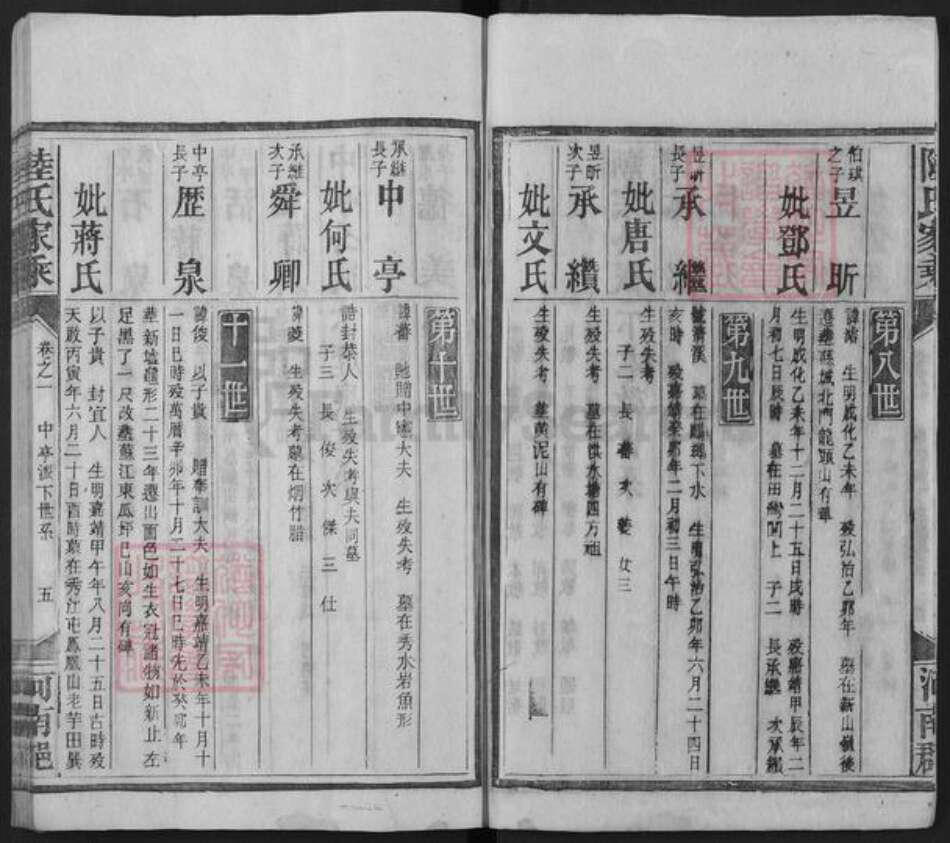 第八世
伯琪之子 昱昕 諱 生明成化乙未年 歿弘治乙卯年 墓在新山嶺後
縣城北門龍頭山有碑
妣鄧氏 生明成化乙未年十二月二十五日戌時 歿嘉靖甲辰年二
月初七日辰時 墓在田灣 上 子二 長承繼 次承纘
第九世
昱昕長子 承繼 號清溪 墓在 下水 生 弘治乙卯年六月二十四日
亥時 歿嘉靖 卯年二月初三日午時
妣唐氏 生歿失考
子二 長蕃 次 女三
昱昕次子 承纘 生歿失考 墓在 水塘四方祖
妣文氏 生歿失考 葬黃泥山有碑
第十世
承繼長子 中亭 諱蕃 贈中憲大夫 生歿失考 墓在秀水岩魚形
妣何氏 誥封恭人 生歿失考與夫同墓
子三 長俊 次傑 三仕
承繼次子 舜卿 諱 生歿失考墓在烟竹腊
十一世
中亭長子 歷泉 諱俊 以子貴 贈奉訓大夫 生明嘉靖乙未年十月十
一日巳時歿萬曆辛卯年十月二十七日巳時先於癸 年
葬新墟龜形二十三年遷出面色如生衣冠諸物如新止左
足黑了一尺改葬蘇江東瓜坪巳山亥向有碑
妣蔣氏 以子貴 封宜人 生明嘉靖甲午年八月二十五日 時歿
天啟丙寅年六月二十日酉時墓在秀江屯鳳凰山老芋田巽
陸氏家乘 卷之一 中亭派下世系 五 河南